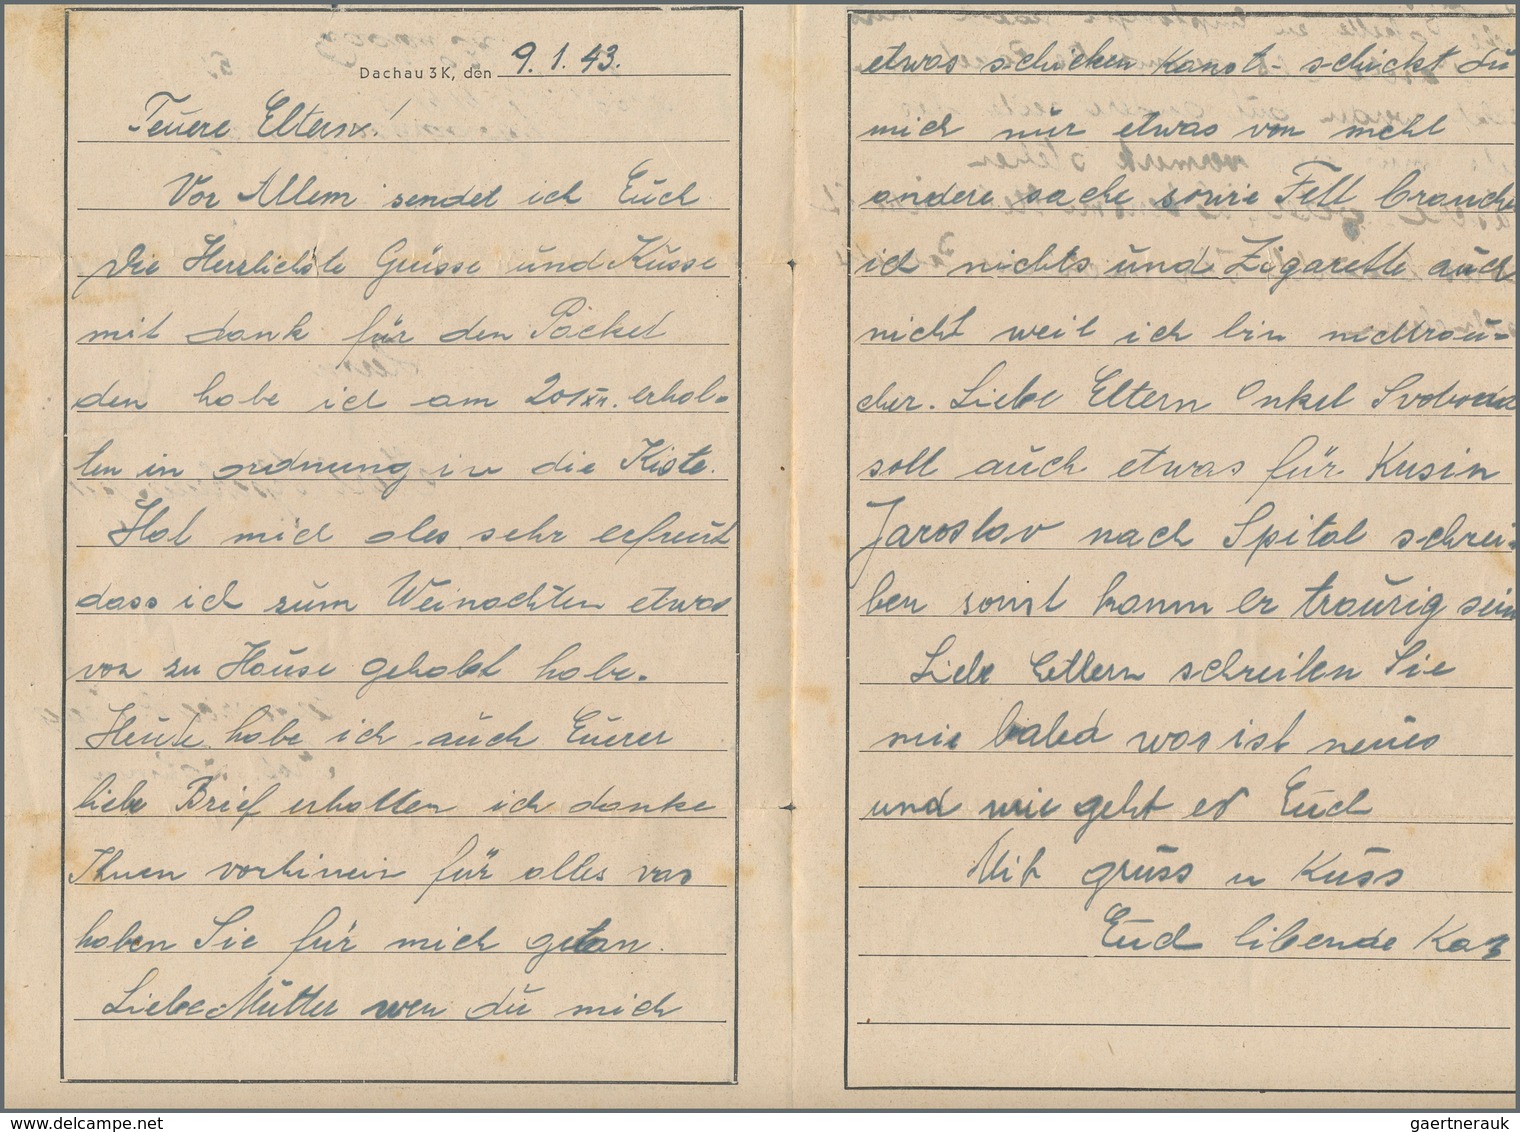 Dachau 3 K, den 9. 1. 43.
Teuere Eltern!
Vor Allem sendet ich Euch
die Herzlichste Grüsse und Küsse
mit dank für den Packet
den habe ich am 20/XII. erhal-
ten in ordnung in die Kiste.
Hat mich ales sehr erfreut
dass ich zum Weinachten etwas
von zu Hause gehabt habe.
Heute habe ich auch Euerer
liebe Brief erhalten ich danke
Ihnen vorhinein für alles was
haben Sie für mich getan.
Liebe Mutter wen du mich
etwas schicken kanst schickt du
mich nur etwas von mehl
andere sache sowie Fett brauche
ich nichts und Zigarette auch
nicht weil ich bin nichtrau-
cher. Liebe Eltern Onkel Svoboda
soll auch etwas für Kusin
Jaroslav nach Spital schrei-
ben sonst kann er traurig sein
Liebe Eltern schreiben Sie
mir bald was ist neues
und wie geht es Euch
Mit gruss u Kuss
Euch libende
gaertnerauk